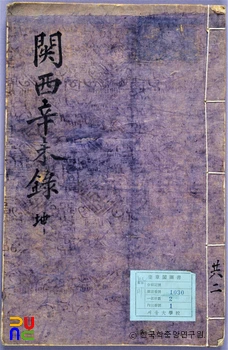 関西辛未錄 坤
共二
1030
2
1
PUNS
© 한국학중앙연구원